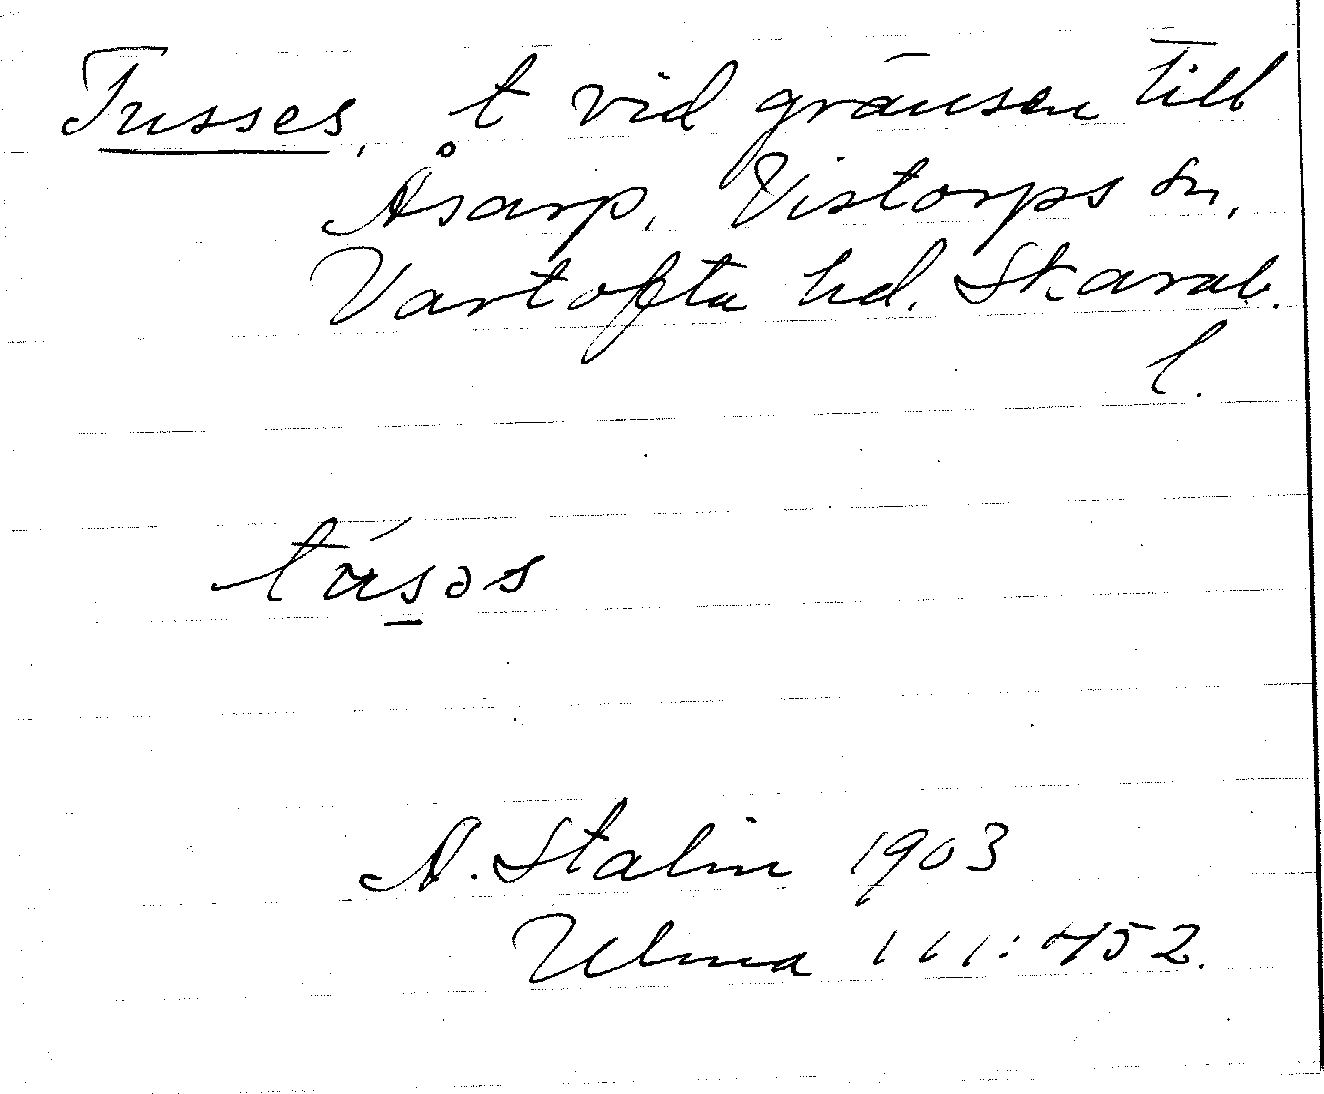 Tusses, t vid gränsen till
Åsarp, Vistorps sn,
Vartofta hd. Skarab.
l.
túsəs
A. Stalin 1903
Ulma 111:452.